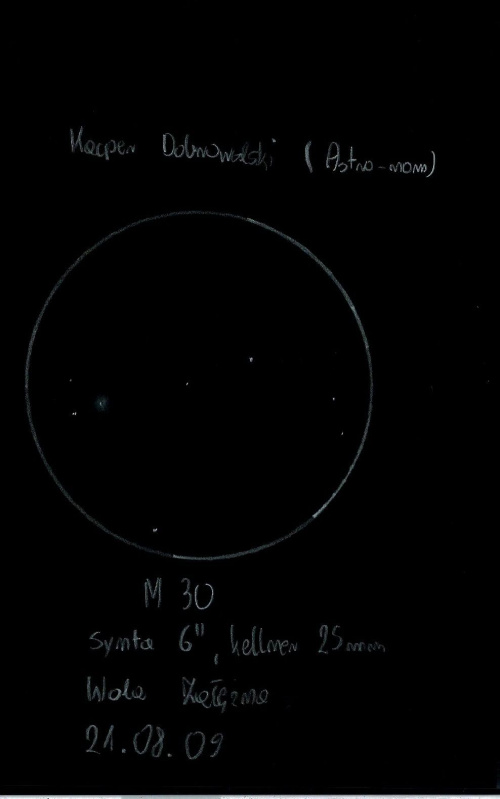 Kacper Dobrowolski (Astro-nom)
M 30
Synta 6", kellner 25mm
Wola
21.08.09